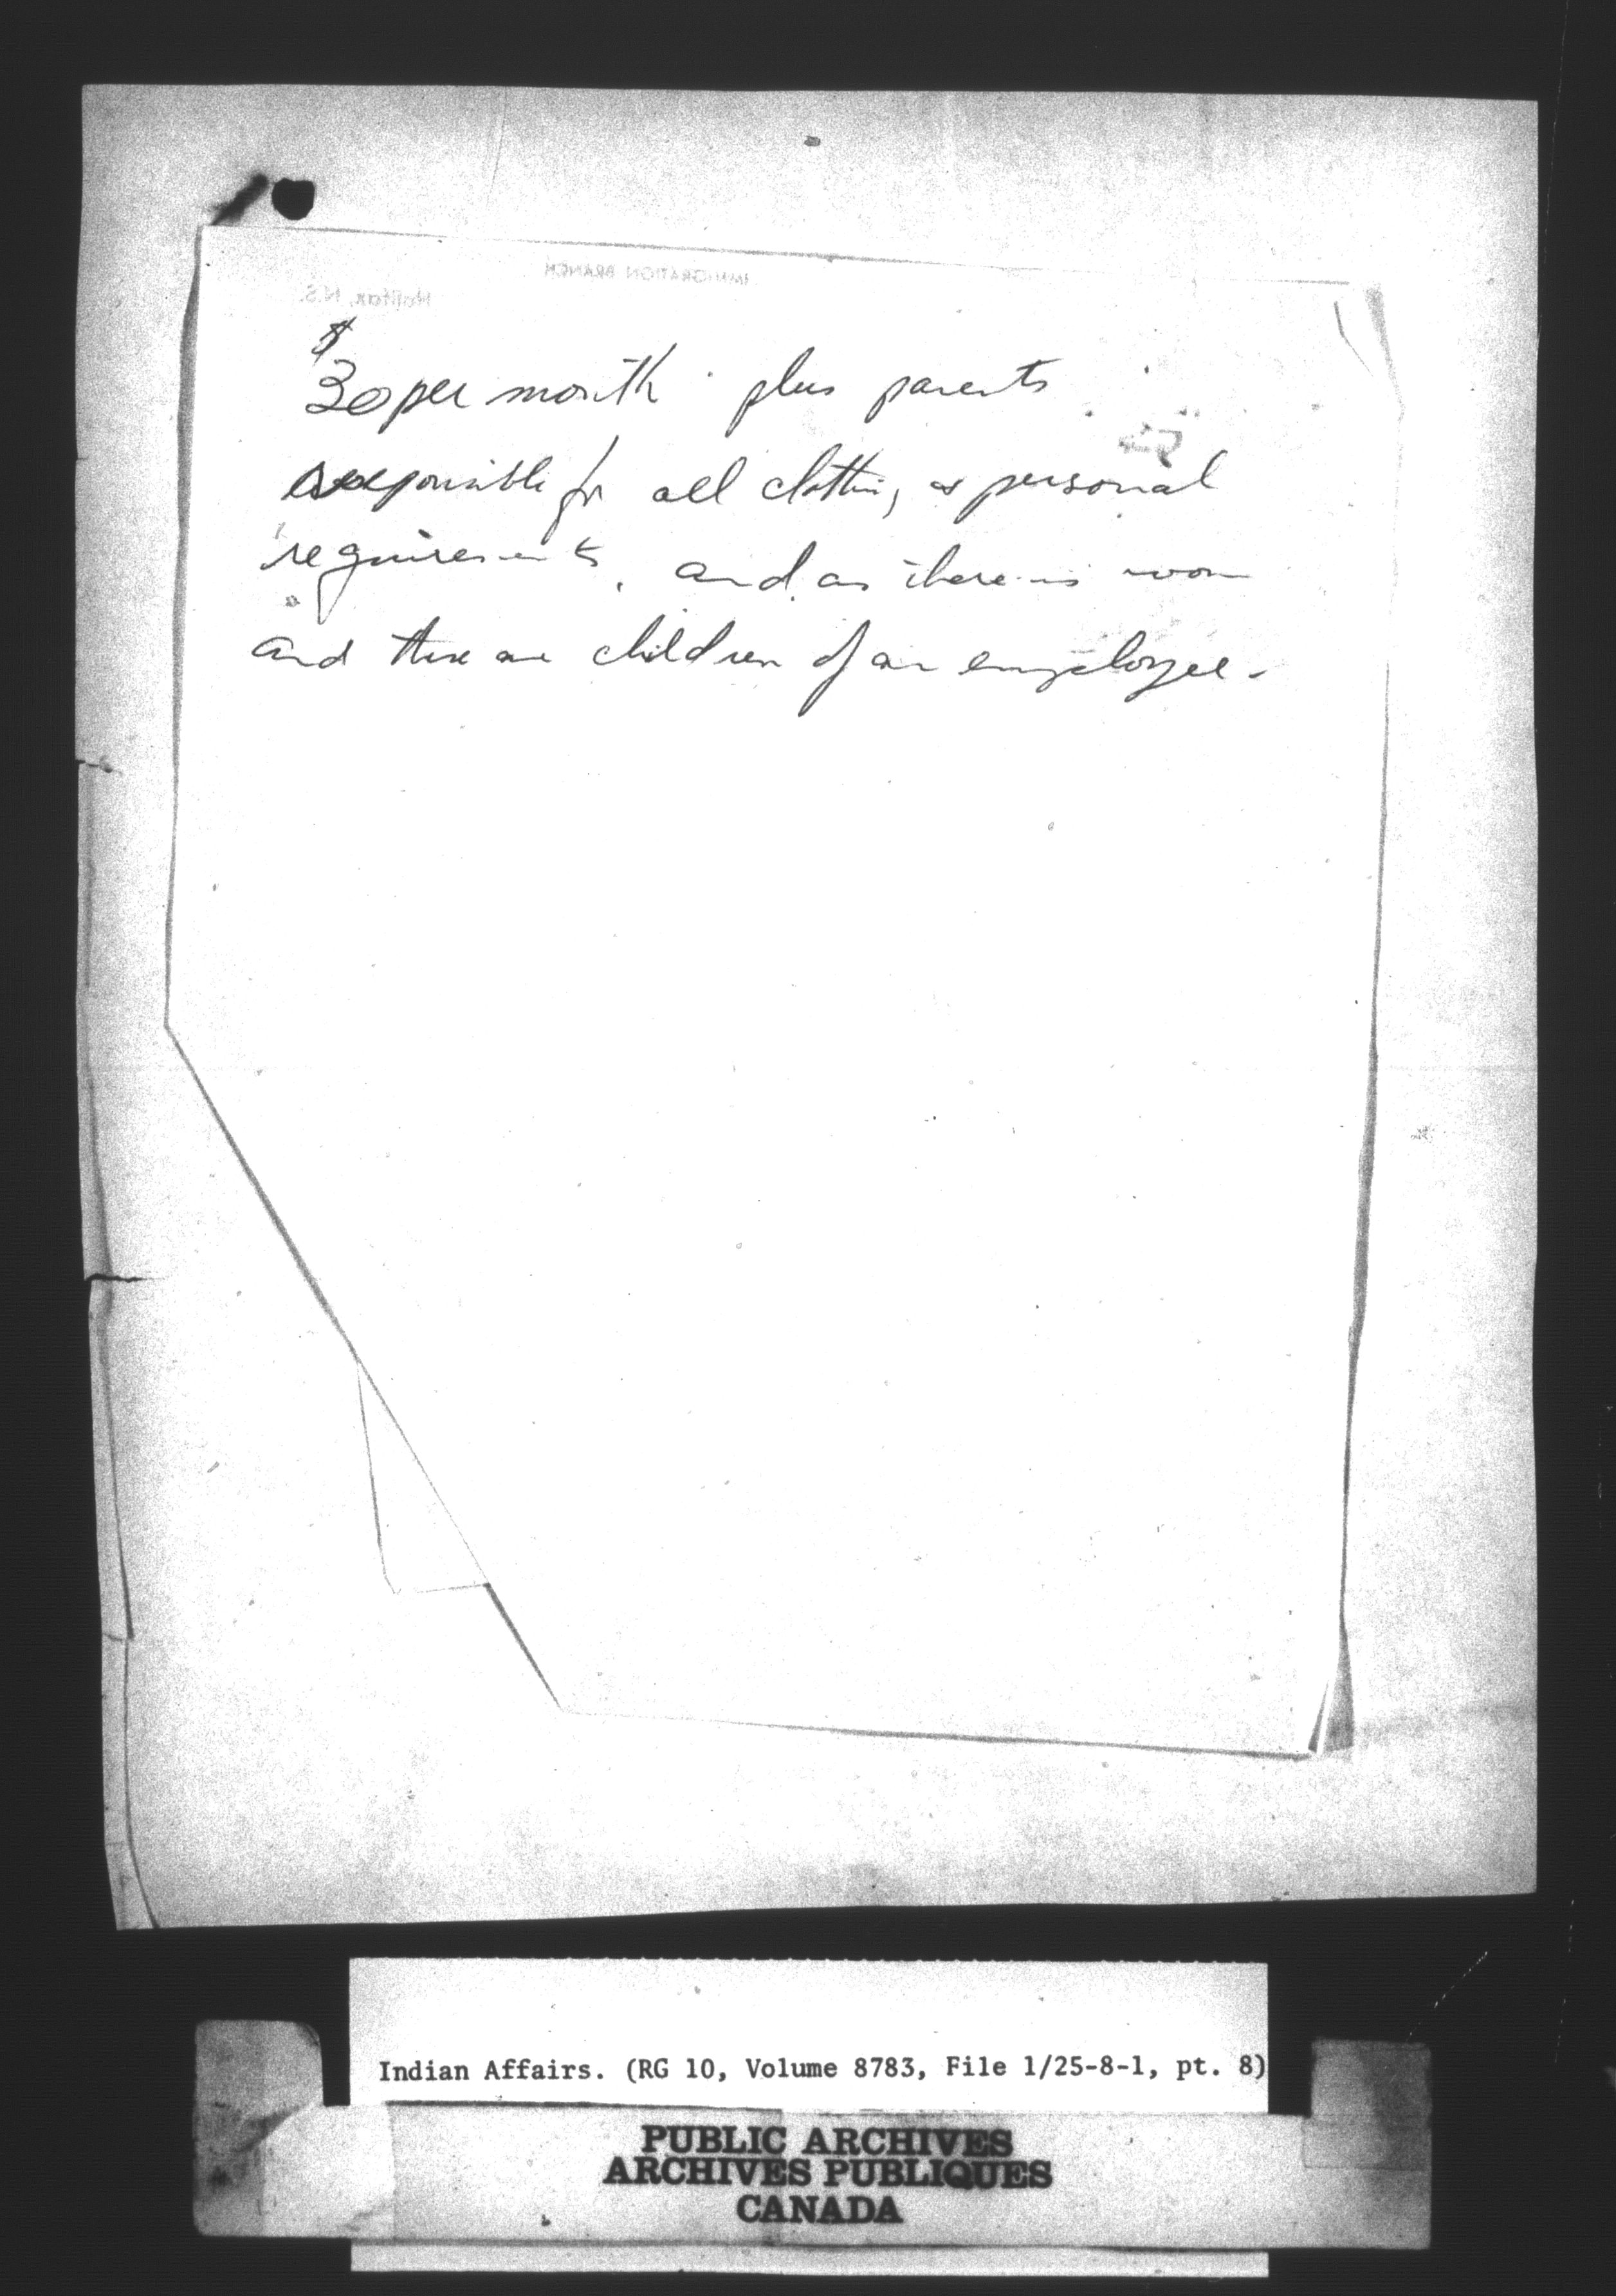 $
30 per month plus parents
responsible for all clothing & personal
requirements, and as there is room
and these are children of an employee.
Indian Affairs. (RG 10, Volume 8783, File 1/25-8-1, pt. 8)
PUBLIC ARCHIVES
ARCHIVES PUBLIQUES
CANADA